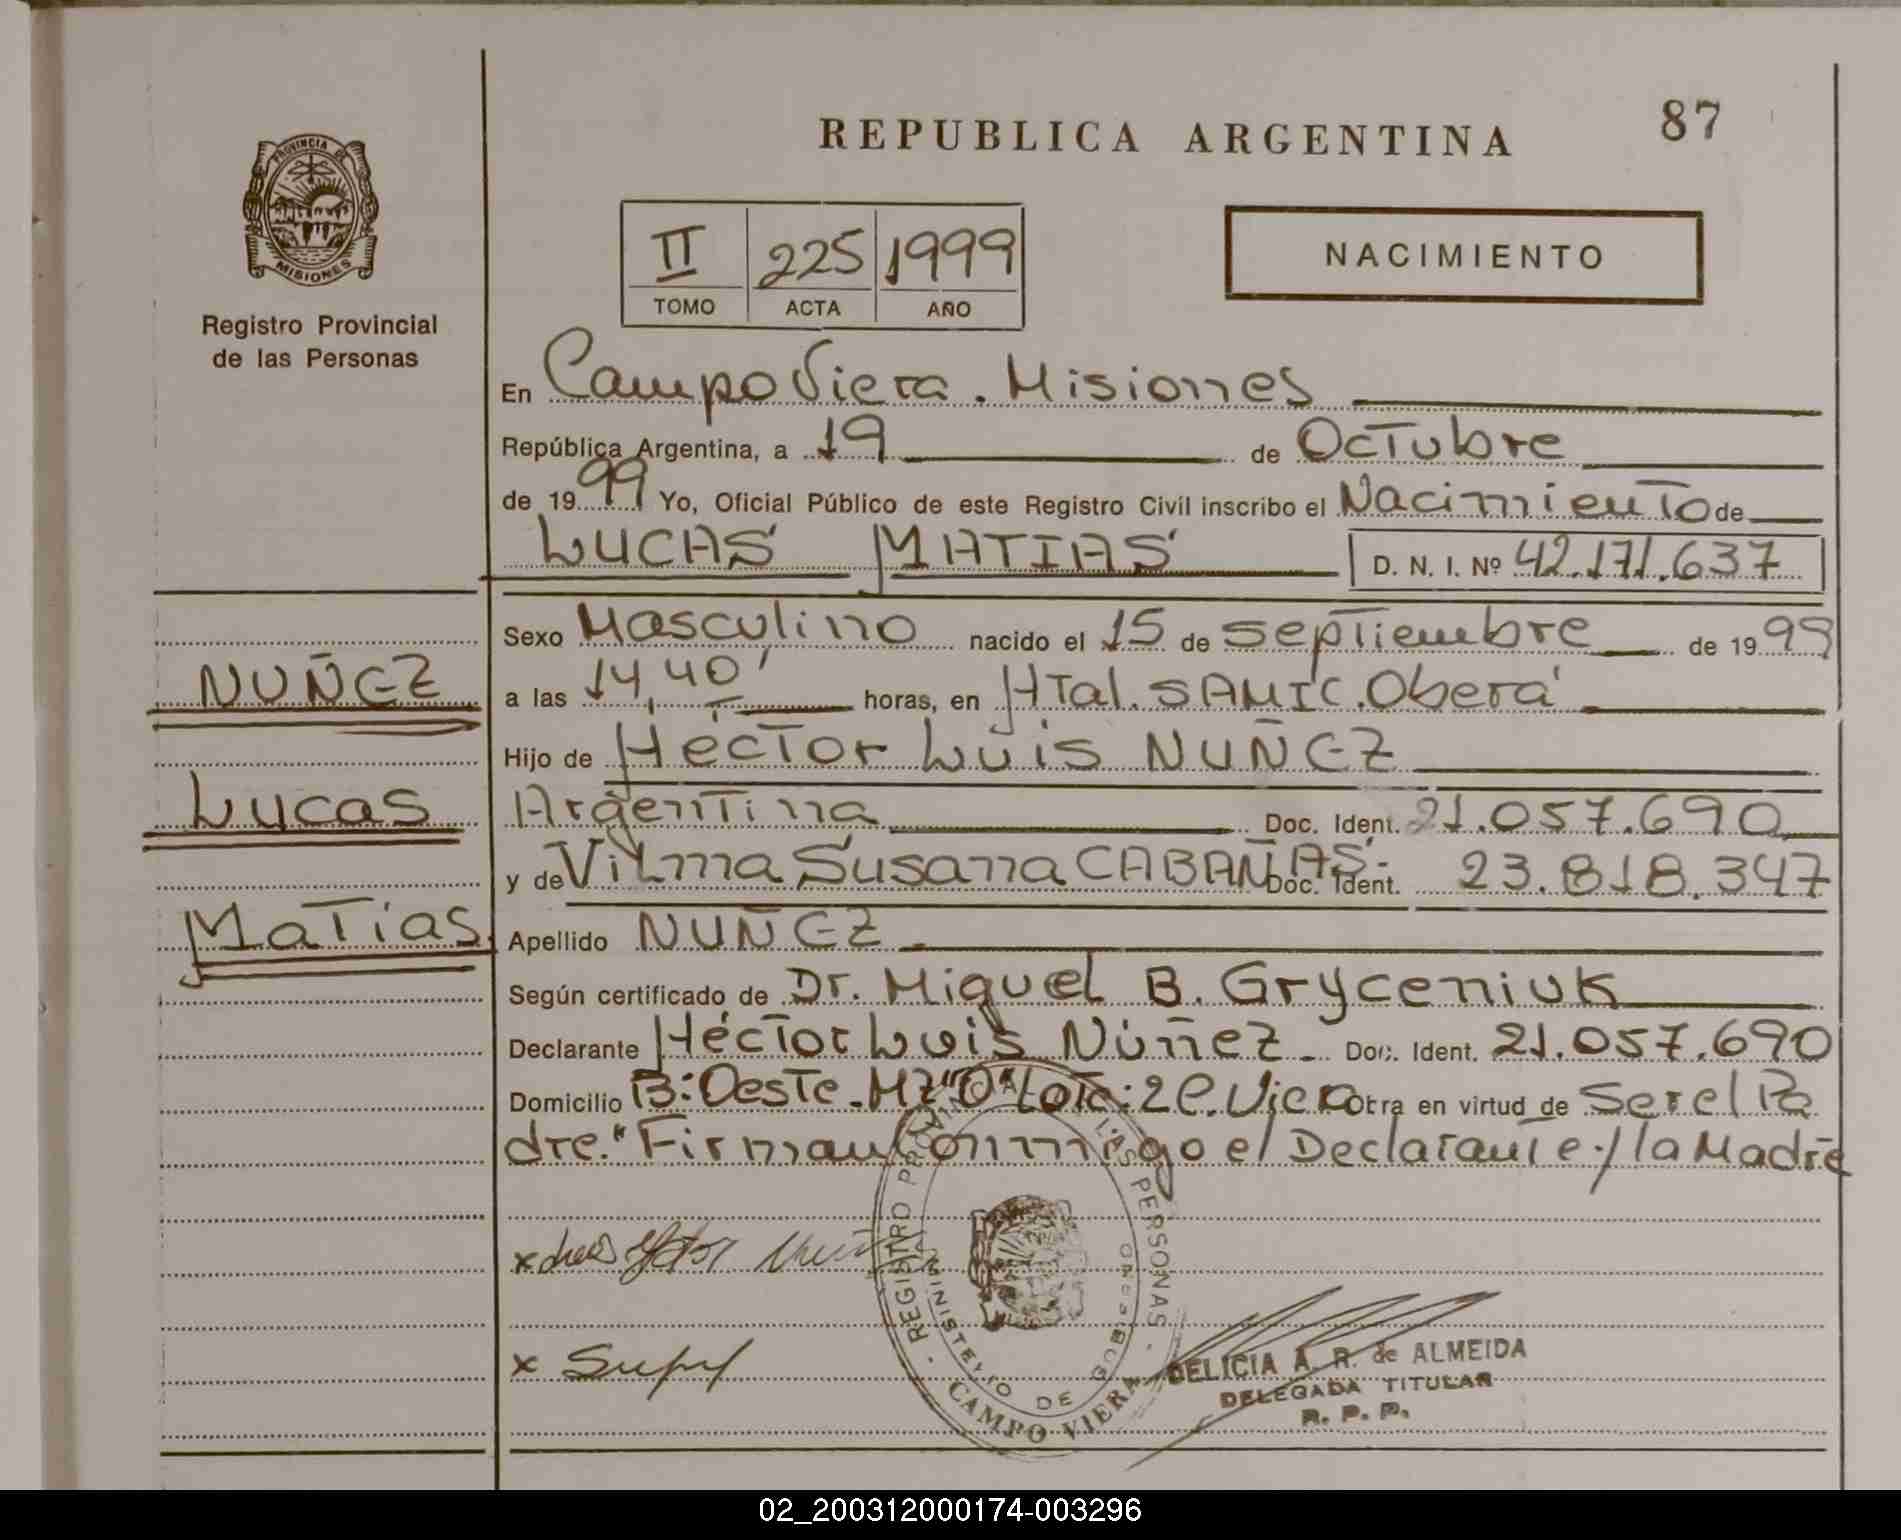 87
REPUBLICA ARGENTINA
PROVINCIA DE
MISIONES
Registro Provincial
de las Personas
II 225 1999
TOMO ACTA AÑO
NACIMIENTO
En Campo Viera. Misiones
República Argentina, a 19 de Octubre
de 1999 Yo, Oficial Público de este Registro Civil inscribo el Nacimiento de
LUCAS MATIAS D. N. I. Nº 42.171.637
Sexo Masculino nacido el 15 de septiembre de 1999
NUÑEZ
a las 14,40' horas, en Htal. SAMIC. Oberá
Hijo de Héctor Luis NUÑEZ
Lucas
Argentina Doc. Ident. 21.057.690
y de Vilma Susana CABAÑAS.- Doc. Ident. 23.818.347
Matias
Apellido NUÑEZ
Según certificado de Dr. Miguel B. Gryceniuk
Declarante Héctor Luis Núñez Doc. Ident. 21.057.690
Domicilio B: Oeste. MZ"O" Lote: 2 C. Viera Obra en virtud de Ser el Pa
dre." Firman Conmigo el Declarante y la Madre
x Luis Hector
x
REGISTRO PROVINCIAL DE LAS PERSONAS
MINISTERIO DE GOBIERNO
CAMPO VIERA
DELICIA A. R. de ALMEIDA
DELEGADA TITULAR
R. P. P.
02_200312000174-003296